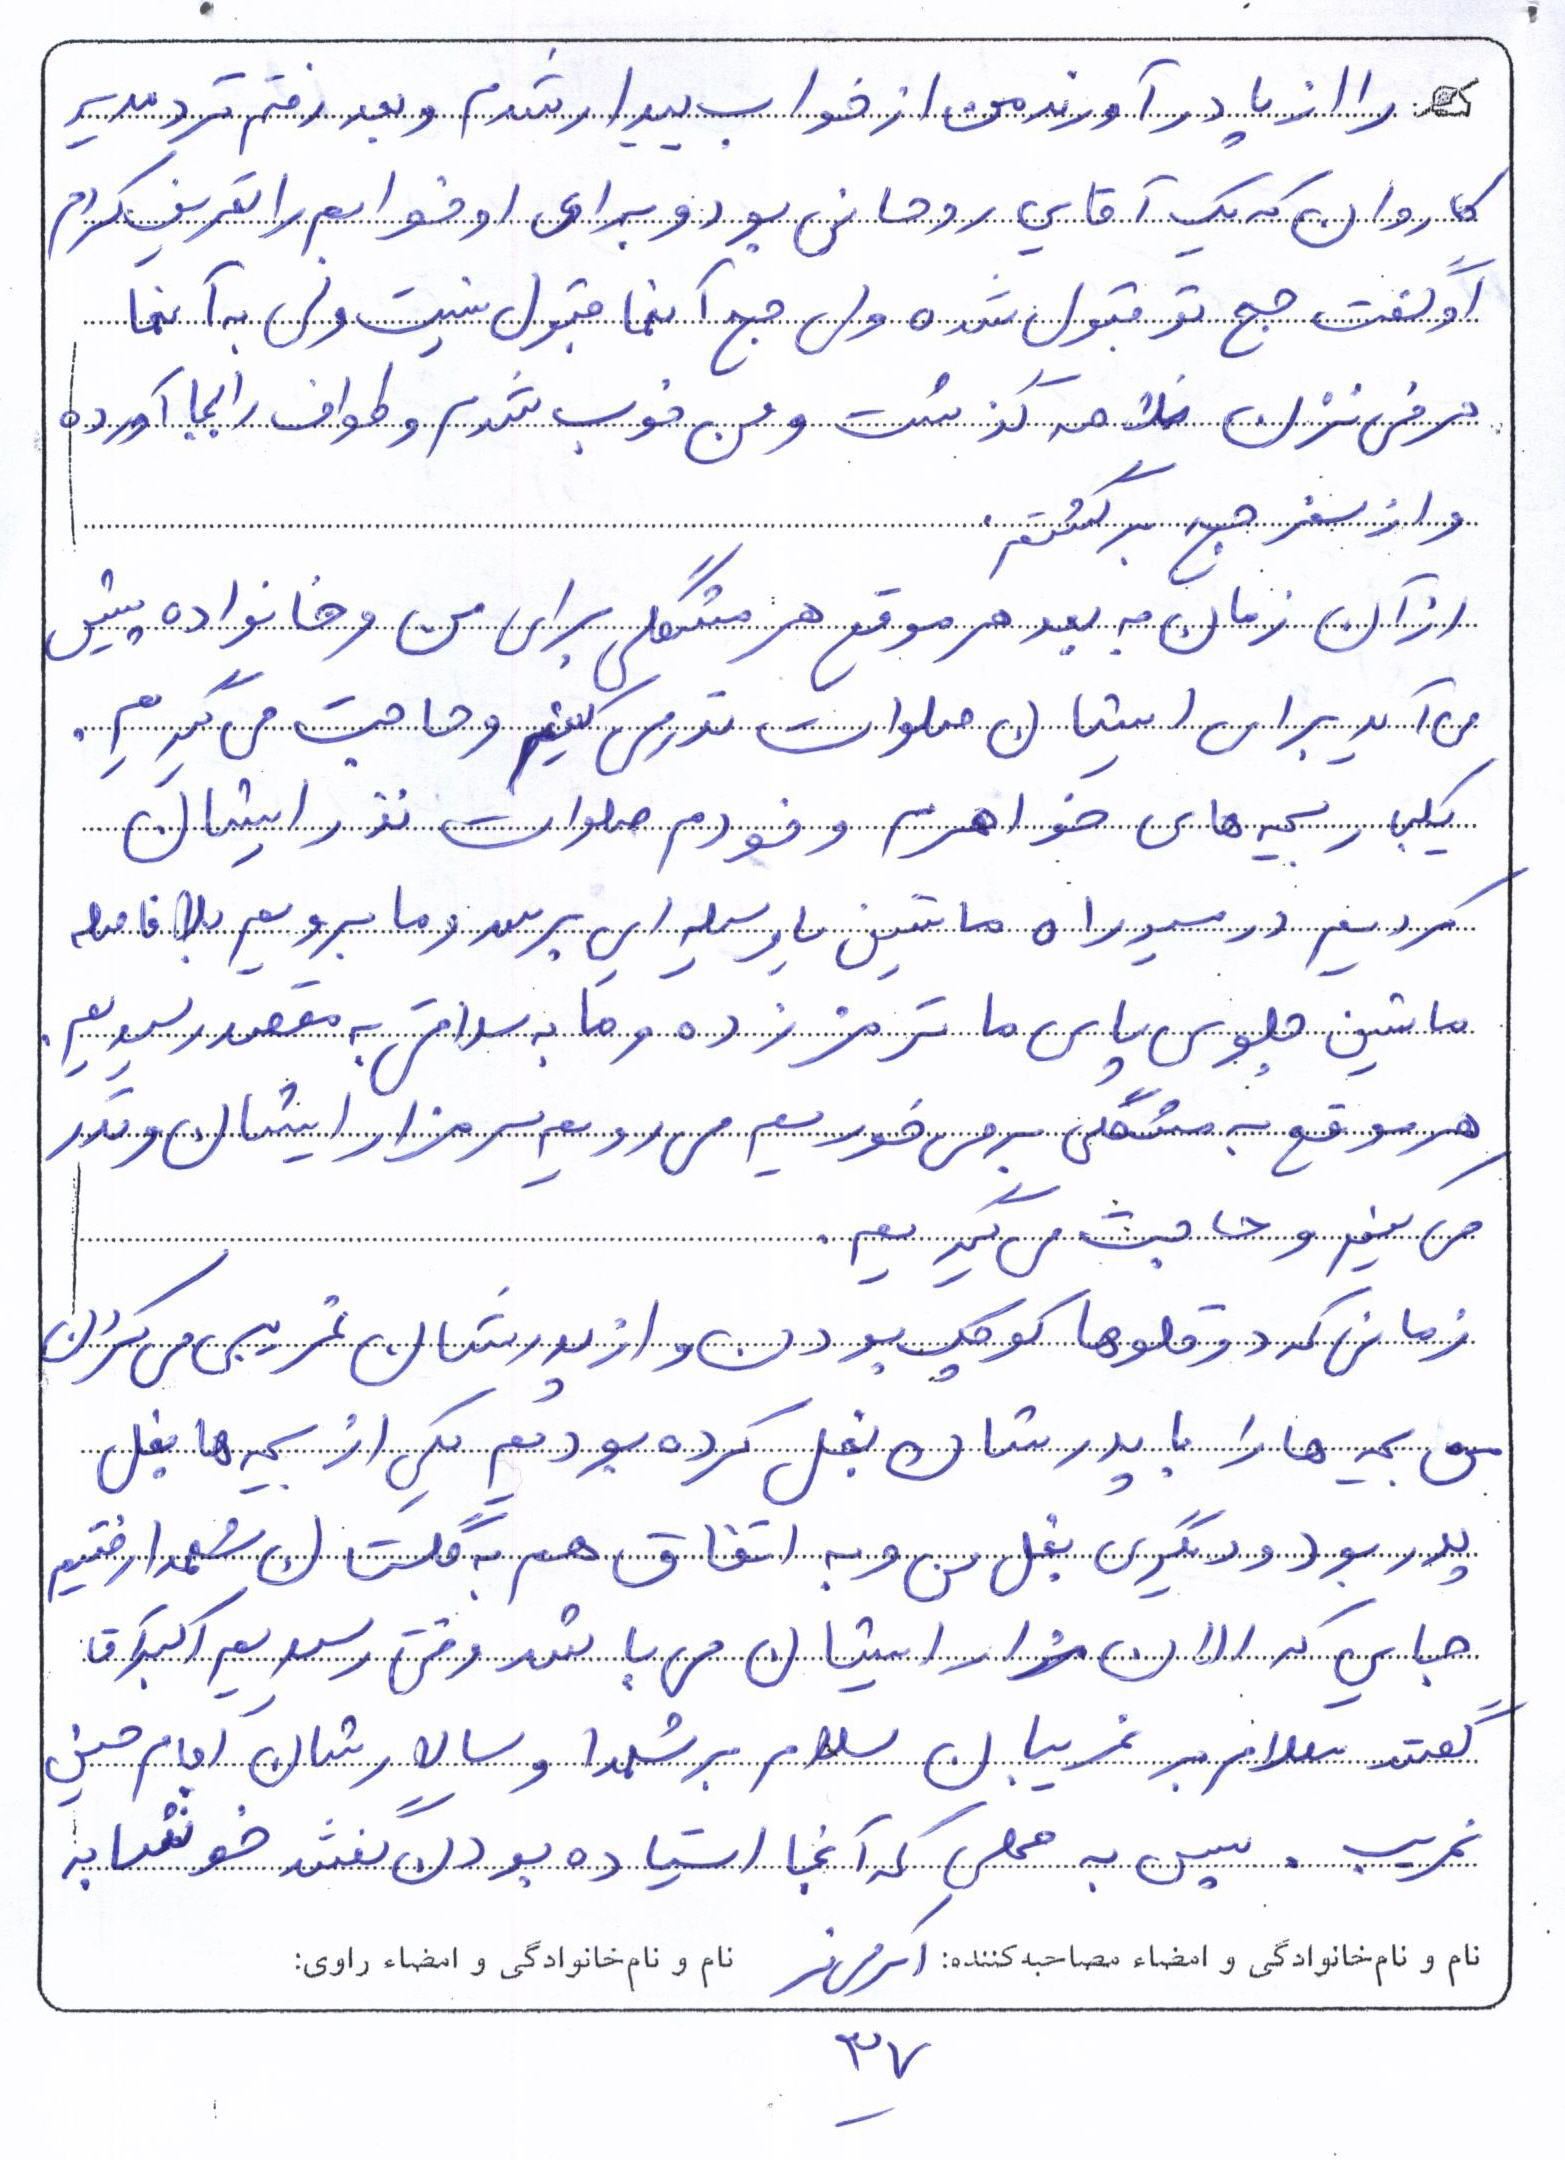 را از پا در آورند من از خواب بیدار شدم و بعد رفتم نزد مدیر
کاروان که یک آقایی روحانی بود و برای او خوابم را تعریف کردم
او گفت حج تو قبول شده ولی حج آنها قبول نیست ولی به آنها
حرفی نزن همه گذشت و من خوب شدم و طواف را بجا آورده
و از سفر حج برگشتم.
از آن زمان به بعد هر موقع هر مشکلی برای من و خانواده پیش
می آید برای ایشان صلوات نذر می کنیم و حاجت می گیریم.
یکبار بچه های خواهرم و خودم صلوات نذر ایشان
کردیم در مسیر راه ماشین یا وسیله ای برسد و ما برویم بلافاصله
ماشین جلوی پای ما ترمز زده و ما به سلامتی به مقصد رسیدیم.
هر موقع به مشکلی بر می خوریم می رویم سر مزار ایشان و نذر
می کنیم و حاجت می گیریم.
زمانی که دوقلوها کوچک بودن و از پدرشان غریبی می کردن
من بچه ها را با پدرشان بغل کرده بودیم یکی از بچه ها بغل
پدر بود و دیگری بغل من و به اتفاق هم به گلستان شهدا رفتیم
جایی که الان مزار ایشان می باشد وقتی رسیدیم اکبرآقا
گفتند سلام بر غریبان سلام بر شهدا و سالارشان امام حسین
غریب. سپس به محلی که آنجا ایستاده بودن گفتند خوشا به
نام و نام‌خانوادگی و امضاء مصاحبه‌کننده: نام و نام‌خانوادگی و امضاء راوی:
۳۷